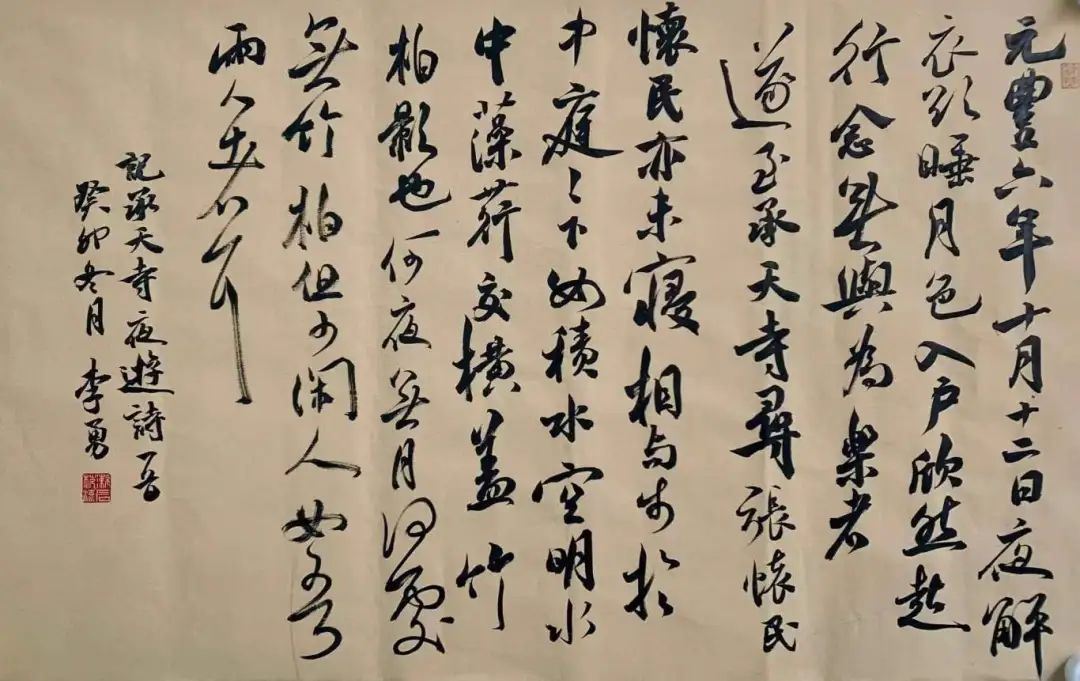 元豐六年十月十二日夜解
衣欲睡月色入户欣然起
行念無與為樂者
遂至承天寺尋張懐民
懷民亦未寢相与步於
中庭〻下如積水空明水
中藻荇交橫蓋竹
柏影也何夜無月何處
無竹柏但少閑人如吾
兩人者耳
記承天寺夜遊詩一首
癸卯冬月 李勇